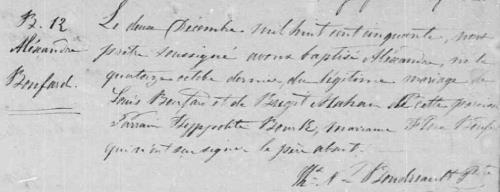 B. 12
Alexandre
Bonfard.
Le deux Décembre mil huit cent cinquante, nous
prêtre soussigné avons baptisé Alexandre, né le
quatorze octobre dernier, du légitime mariage de
Louis Bonfard et de Brigit Mahan de cette paroisse
Parrain Hyppolite Bourk, marraine Flora
qui n'ont su signer le père absent.
Ths. Boudreault Ptre